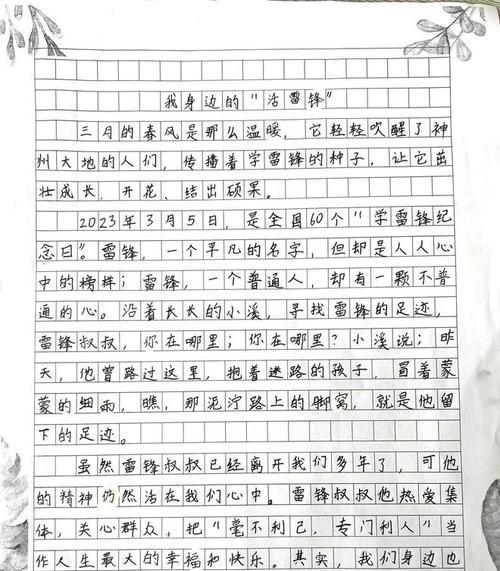 我身边的"活雷锋"
三月的春风是那么温暖，它轻轻吹醒了神
州大地的人们，传播着学雷锋的种子，让它茁
壮成长、开花、结出硕果。
2023年3月5日，是全国60个"学雷锋纪
念日"。雷锋，一个平凡的名字，但却是人人心
中的榜样；雷锋，一个普通人，却有一颗不普
通的心。沿着长长的小溪，寻找雷锋的足迹，
雷锋叔叔，你在哪里；你在哪里？小溪说；昨
天，他曾路过这里，抱着迷路的孩子，冒着蒙
蒙的细雨，瞧，那泥泞路上的脚窝，就是他留
下的足迹。
虽然雷锋叔叔已经离开我们多年了，可他
的精神仍然活在我们心中。雷锋叔叔他热爱集
体，关心群众，把"毫不利己，专门利人"当
作人生最大的幸福和快乐。其实，我们身边也